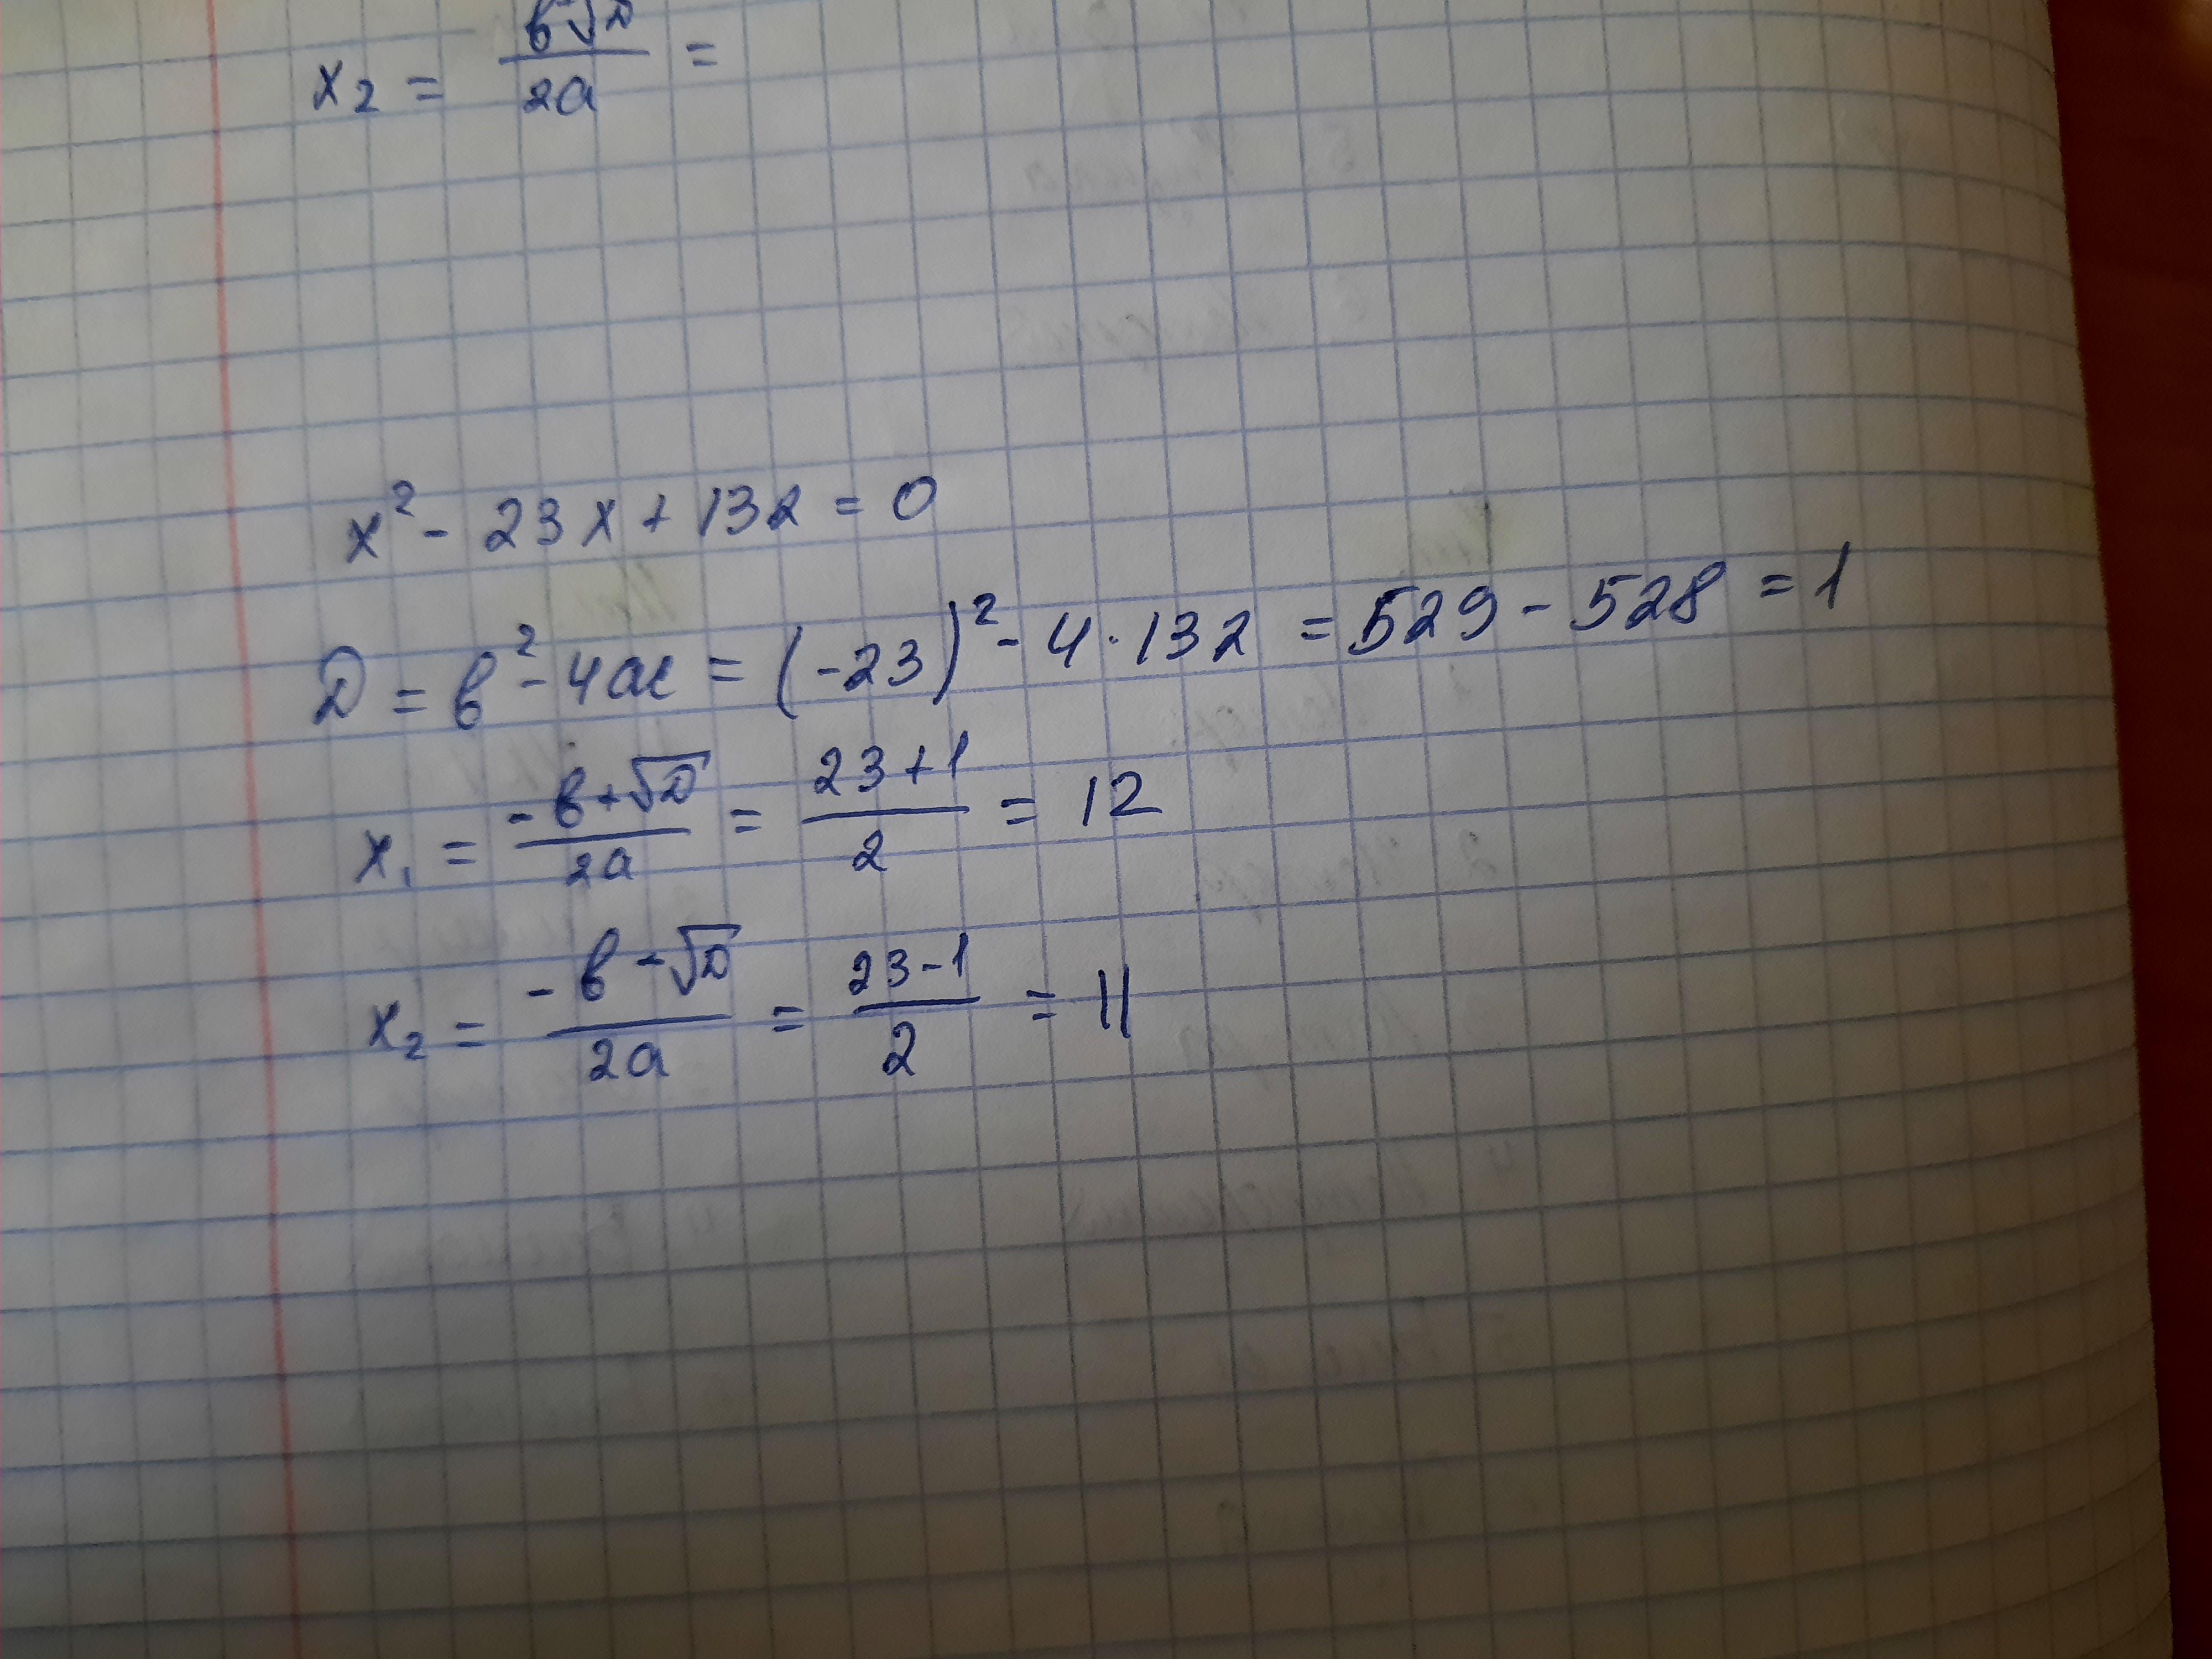 x₂ = (в-√D)/(2a) =
x² - 23x + 132 = 0
D = в² - 4ac = (-23)² - 4·132 = 529 - 528 = 1
x₁ = (-в+√D)/(2a) = (23+1)/2 = 12
x₂ = (-в-√D)/(2a) = (23-1)/2 = 11